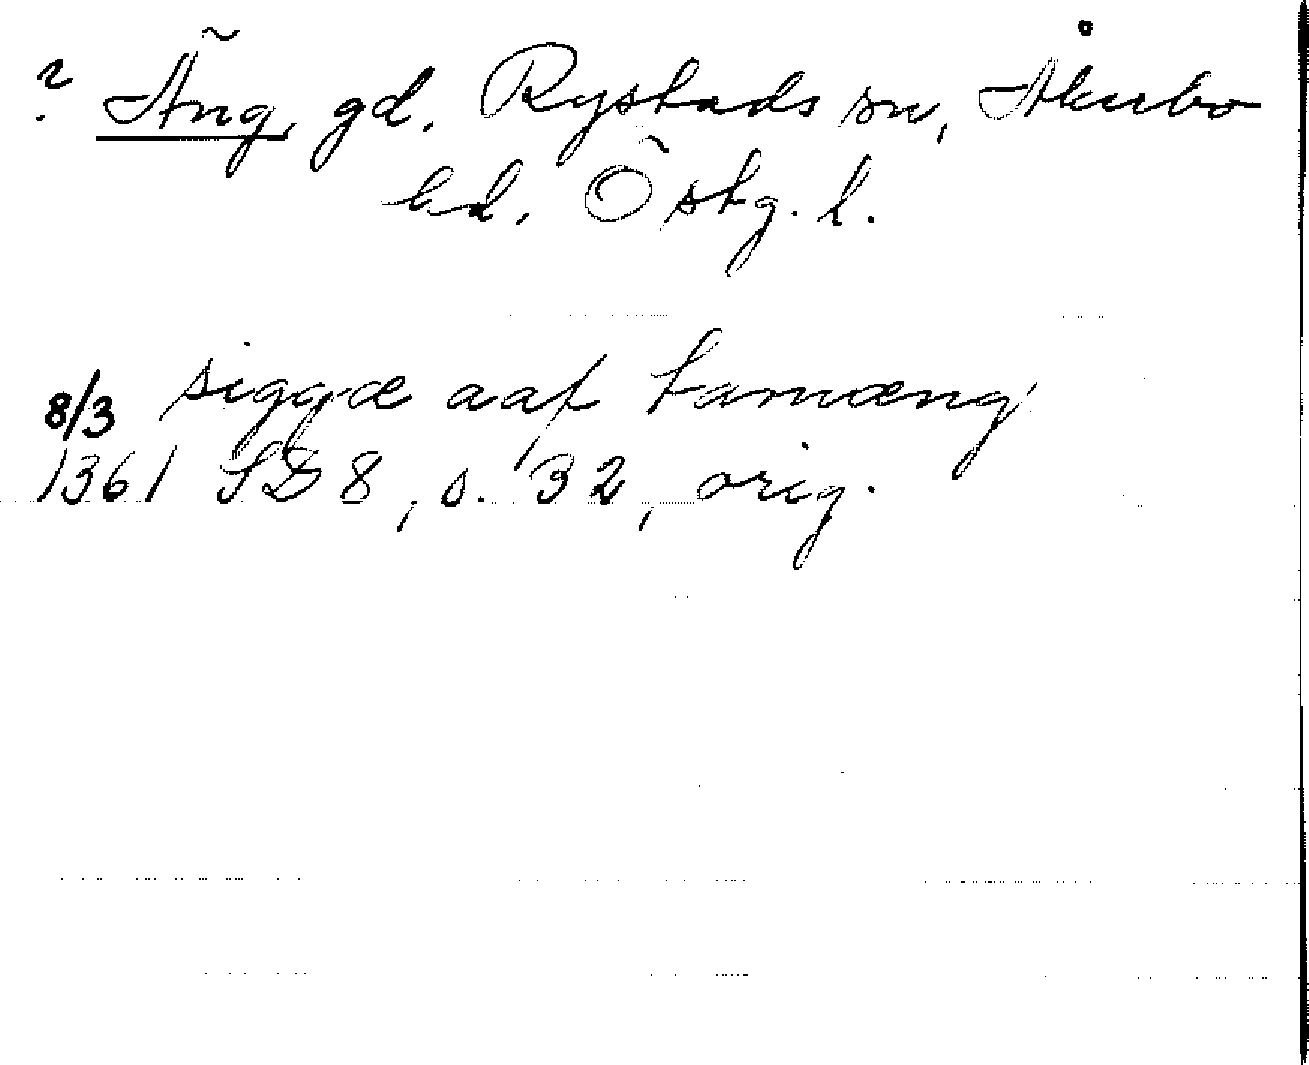 ? Äng, gd. Rystads sn, Åkerbo
hd. Östg. l.
8/3 siggæ aaf tamæng
1361 SD 8, s. 32, orig.